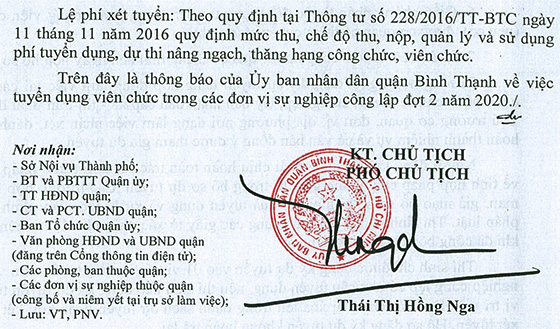 Lệ phí xét tuyển: Theo quy định tại Thông tư số 228/2016/TT-BTC ngày
11 tháng 11 năm 2016 quy định mức thu, chế độ thu, nộp, quản lý và sử dụng
phí tuyển dụng, dự thi nâng ngạch, thăng hạng công chức, viên chức.
Trên đây là thông báo của Ủy ban nhân dân quận Bình Thạnh về việc
tuyển dụng viên chức trong các đơn vị sự nghiệp công lập đợt 2 năm 2020./.
Nơi nhận:
- Sở Nội vụ Thành phố;
- BT và PBTTT Quận ủy;
- TT HĐND quận;
- CT và PCT. UBND quận;
- Ban Tổ chức Quận ủy;
- Văn phòng HĐND và UBND quận
(đăng trên Cổng thông tin điện tử);
- Các phòng, ban thuộc quận;
- Các đơn vị sự nghiệp thuộc quận
(công bố và niêm yết tại trụ sở làm việc);
- Lưu: VT, PNV.
KT. CHỦ TỊCH
PHÓ CHỦ TỊCH
ỦY BAN NHÂN DÂN QUẬN BÌNH THẠNH
Thái Thị Hồng Nga